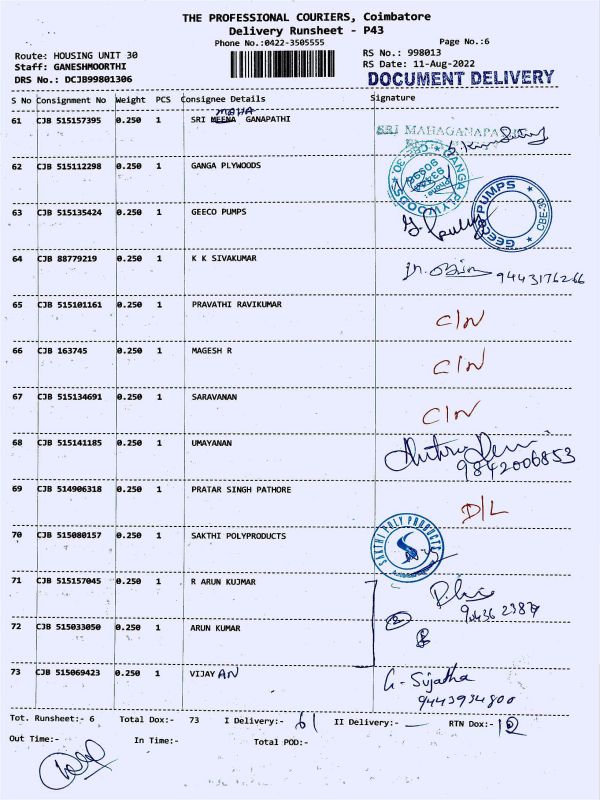 THE PROFESSIONAL COURIERS, Coimbatore
Delivery Runsheet - P43
Phone No.:0422-3505555
Page No.:6
Route: HOUSING UNIT 30
RS No.: 998013
Staff: GANESHMOORTHI
RS Date: 11-Aug-2022
DRS No.: DCJB99801306
DOCUMENT DELIVERY
S No Consignment No Weight PCS Consignee Details Signature
MAHA
61 CJB 515157395 0.250 1 SRI MEENA GANAPATHI
SRI MAHAGANAPA
62 CJB 515112298 0.250 1 GANGA PLYWOODS
GANGA PLYWOODS * CBE-30 *
Phone:
63 CJB 515135424 0.250 1 GEECO PUMPS
GEECO PUMPS * CBE-30 *
64 CJB 88779219 0.250 1 K K SIVAKUMAR
9443176266
65 CJB 515101161 0.250 1 PRAVATHI RAVIKUMAR C/N
66 CJB 163745 0.250 1 MAGESH R C/N
67 CJB 515134691 0.250 1 SARAVANAN C/N
68 CJB 515141185 0.250 1 UMAYANAN
9842006853
69 CJB 514906318 0.250 1 PRATAR SINGH PATHORE D/L
70 CJB 515080157 0.250 1 SAKTHI POLYPRODUCTS
SAKTHI POLY PRODUCTS
71 CJB 515157045 0.250 1 R ARUN KUJMAR
72 CJB 515033050 0.250 1 ARUN KUMAR
2
73 CJB 515069423 0.250 1 VIJAYAN
G-Sujatha
9443934800
Tot. Runsheet:- 6 Total Dox:- 73 I Delivery:- 61 II Delivery:- — RTN Dox:- 12
Out Time:- In Time:- Total POD:-